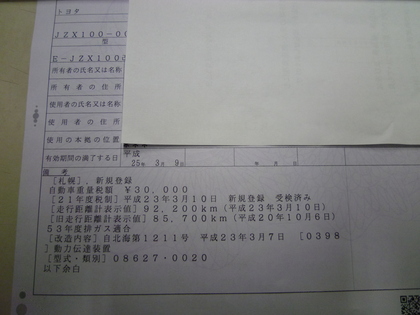 トヨタ
JZX100-00
型
E-JZX100
所有者の氏名又は名称
所有者の住所
使用者の氏名又は名称
使用者の住所
使用の本拠の位置
有効期間の満了する日 平成 25年 3月 9日 年 月 日
備考
[札幌],新規登録
自動車重量税額 ¥30,000
[21年度税制]平成23年3月10日 新規登録 受検済み
[走行距離計表示値]92,200km(平成23年3月10日)
[旧走行距離計表示値]85,700km(平成20年10月6日)
53年度排ガス適合
[改造内容]自北海第1211号 平成23年3月7日 [0398
]動力伝達装置
[型式・類別]08627-0020
以下余白